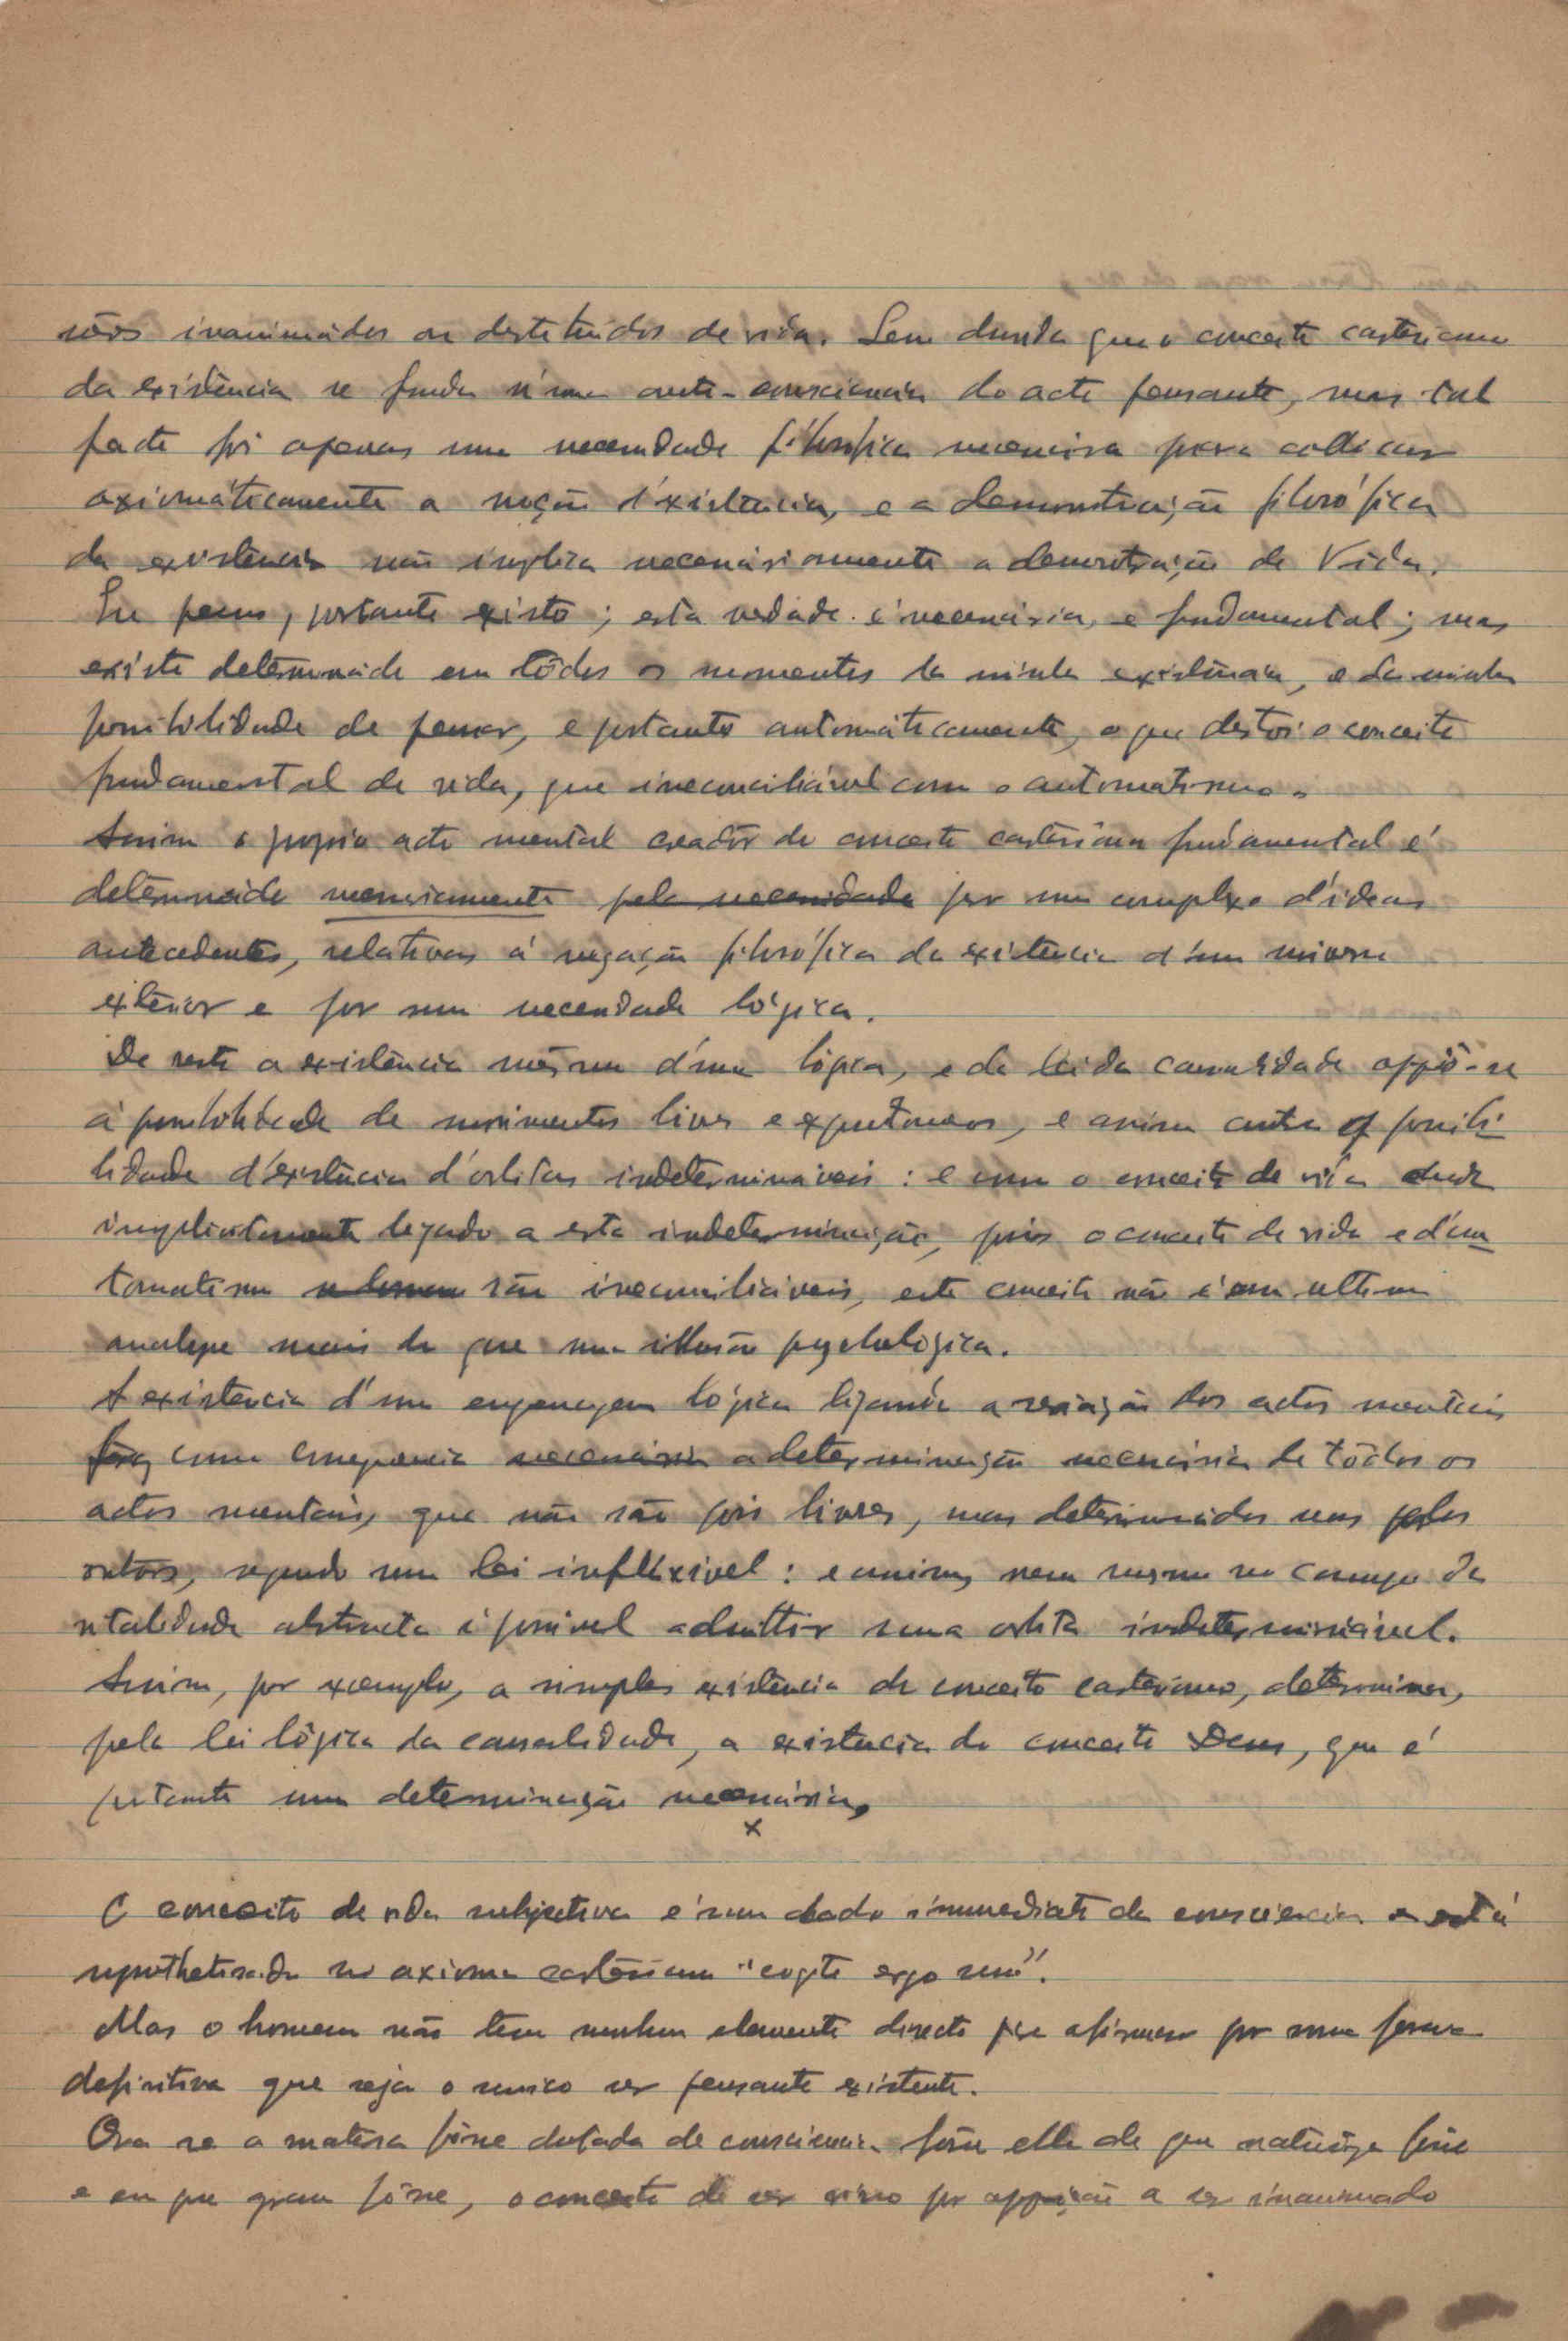 sêres inanimados ou destituidos de vida. Sem duvida que o conceito cartesiano
da existência se funda n'uma auto-consciencia do acto pensante, mas tal
facto foi apenas uma necessidade filosofica necessária para collocar
axiomáticamente a noção d'existencia, e a demonstração filosófica
da existência não implica necessáriamente a demonstração da Vida.
Eu penso, portanto existo; esta verdade é necessária, e fundamental; mas
existe determinada em tôdos os momentos da minha existência, e da minha
possibilidade de pensar, e portanto automáticamente, o que destroi o conceito
fundamental de vida, que irreconciliável com o automatismo.
Assim o proprio acto mental creador do conceito cartesiano fundamental é
determinado necessariamente pela necessidade por um complexo d'ideas
antecedentes, relativas á negação filosófica da existencia d'um universo
exterior e por uma necessidade lógica.
De resto a existência mesmo d'uma lógica, e da lei da causalidade oppõe-se
á possibilidade de movimentos livres e expontaneos, e assim contra a possibi-
lidade d'existência d'orbitas indetermináveis : e como o conceito de vida anda
implicitamente ligado a esta indeterminação, pois o conceito de vida e d'au-
tomatismo são irreconciliáveis, este conceito não é em ultima
analyse mais do que uma illusão psychologica.
A existencia d'uma engrenagem lógica ligando a seriação dos actos mentais
como consequencia necessária a determinação necessária de tôdos os
actos mentais, que não são pois livres, mas determinados uns pelos
outros, segundo uma lei infléxivel : e assim, nem mesmo no campo da
vitalidade abstracta é possivel admittir uma orbita indeterminável.
Assim, por exemplo, a simples existência do conceito cartesiano, determina,
pela lei lógica da causalidade, a existencia do conceito Deus, que é
portanto uma determinação necessária.
x
O conceito de vida subjectiva é um dado immediato da consciencia e está
sypothetisado no axioma cartesiano "cogito ergo sum".
Mas o homem não tem nenhum elemento directo para afirmar por uma forma
definitiva que seja o unico ser pensante existente.
Ora se a materia fôsse dotada de consciencia fôsse ella de que naturêza fôsse
e em que grau fôsse, o conceito de ser vivo por opposição a ser inanimado